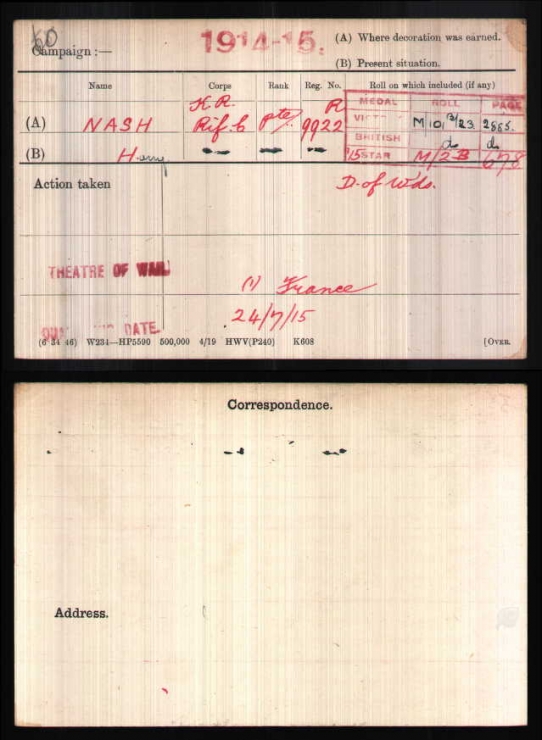 Campaign :— 1914-15. (A) Where decoration was earned.
(B) Present situation.
Name Corps Rank Reg. No. Roll on which included (if any)
K.R. R MEDAL ROLL PAGE
(A) NASH Rif. C Pte. 9922 VICTORY M/10,3/23 2885.
BRITISH do do
(B) Harry 15 STAR M/2-B 678
Action taken D. of Wds.
THEATRE OF WAR.
(1) France
DATE 24/7/15
(6 34 46) W234—HP5590 500,000 4/19 HWV(P240) K608 [OVER.
Correspondence.
Address.